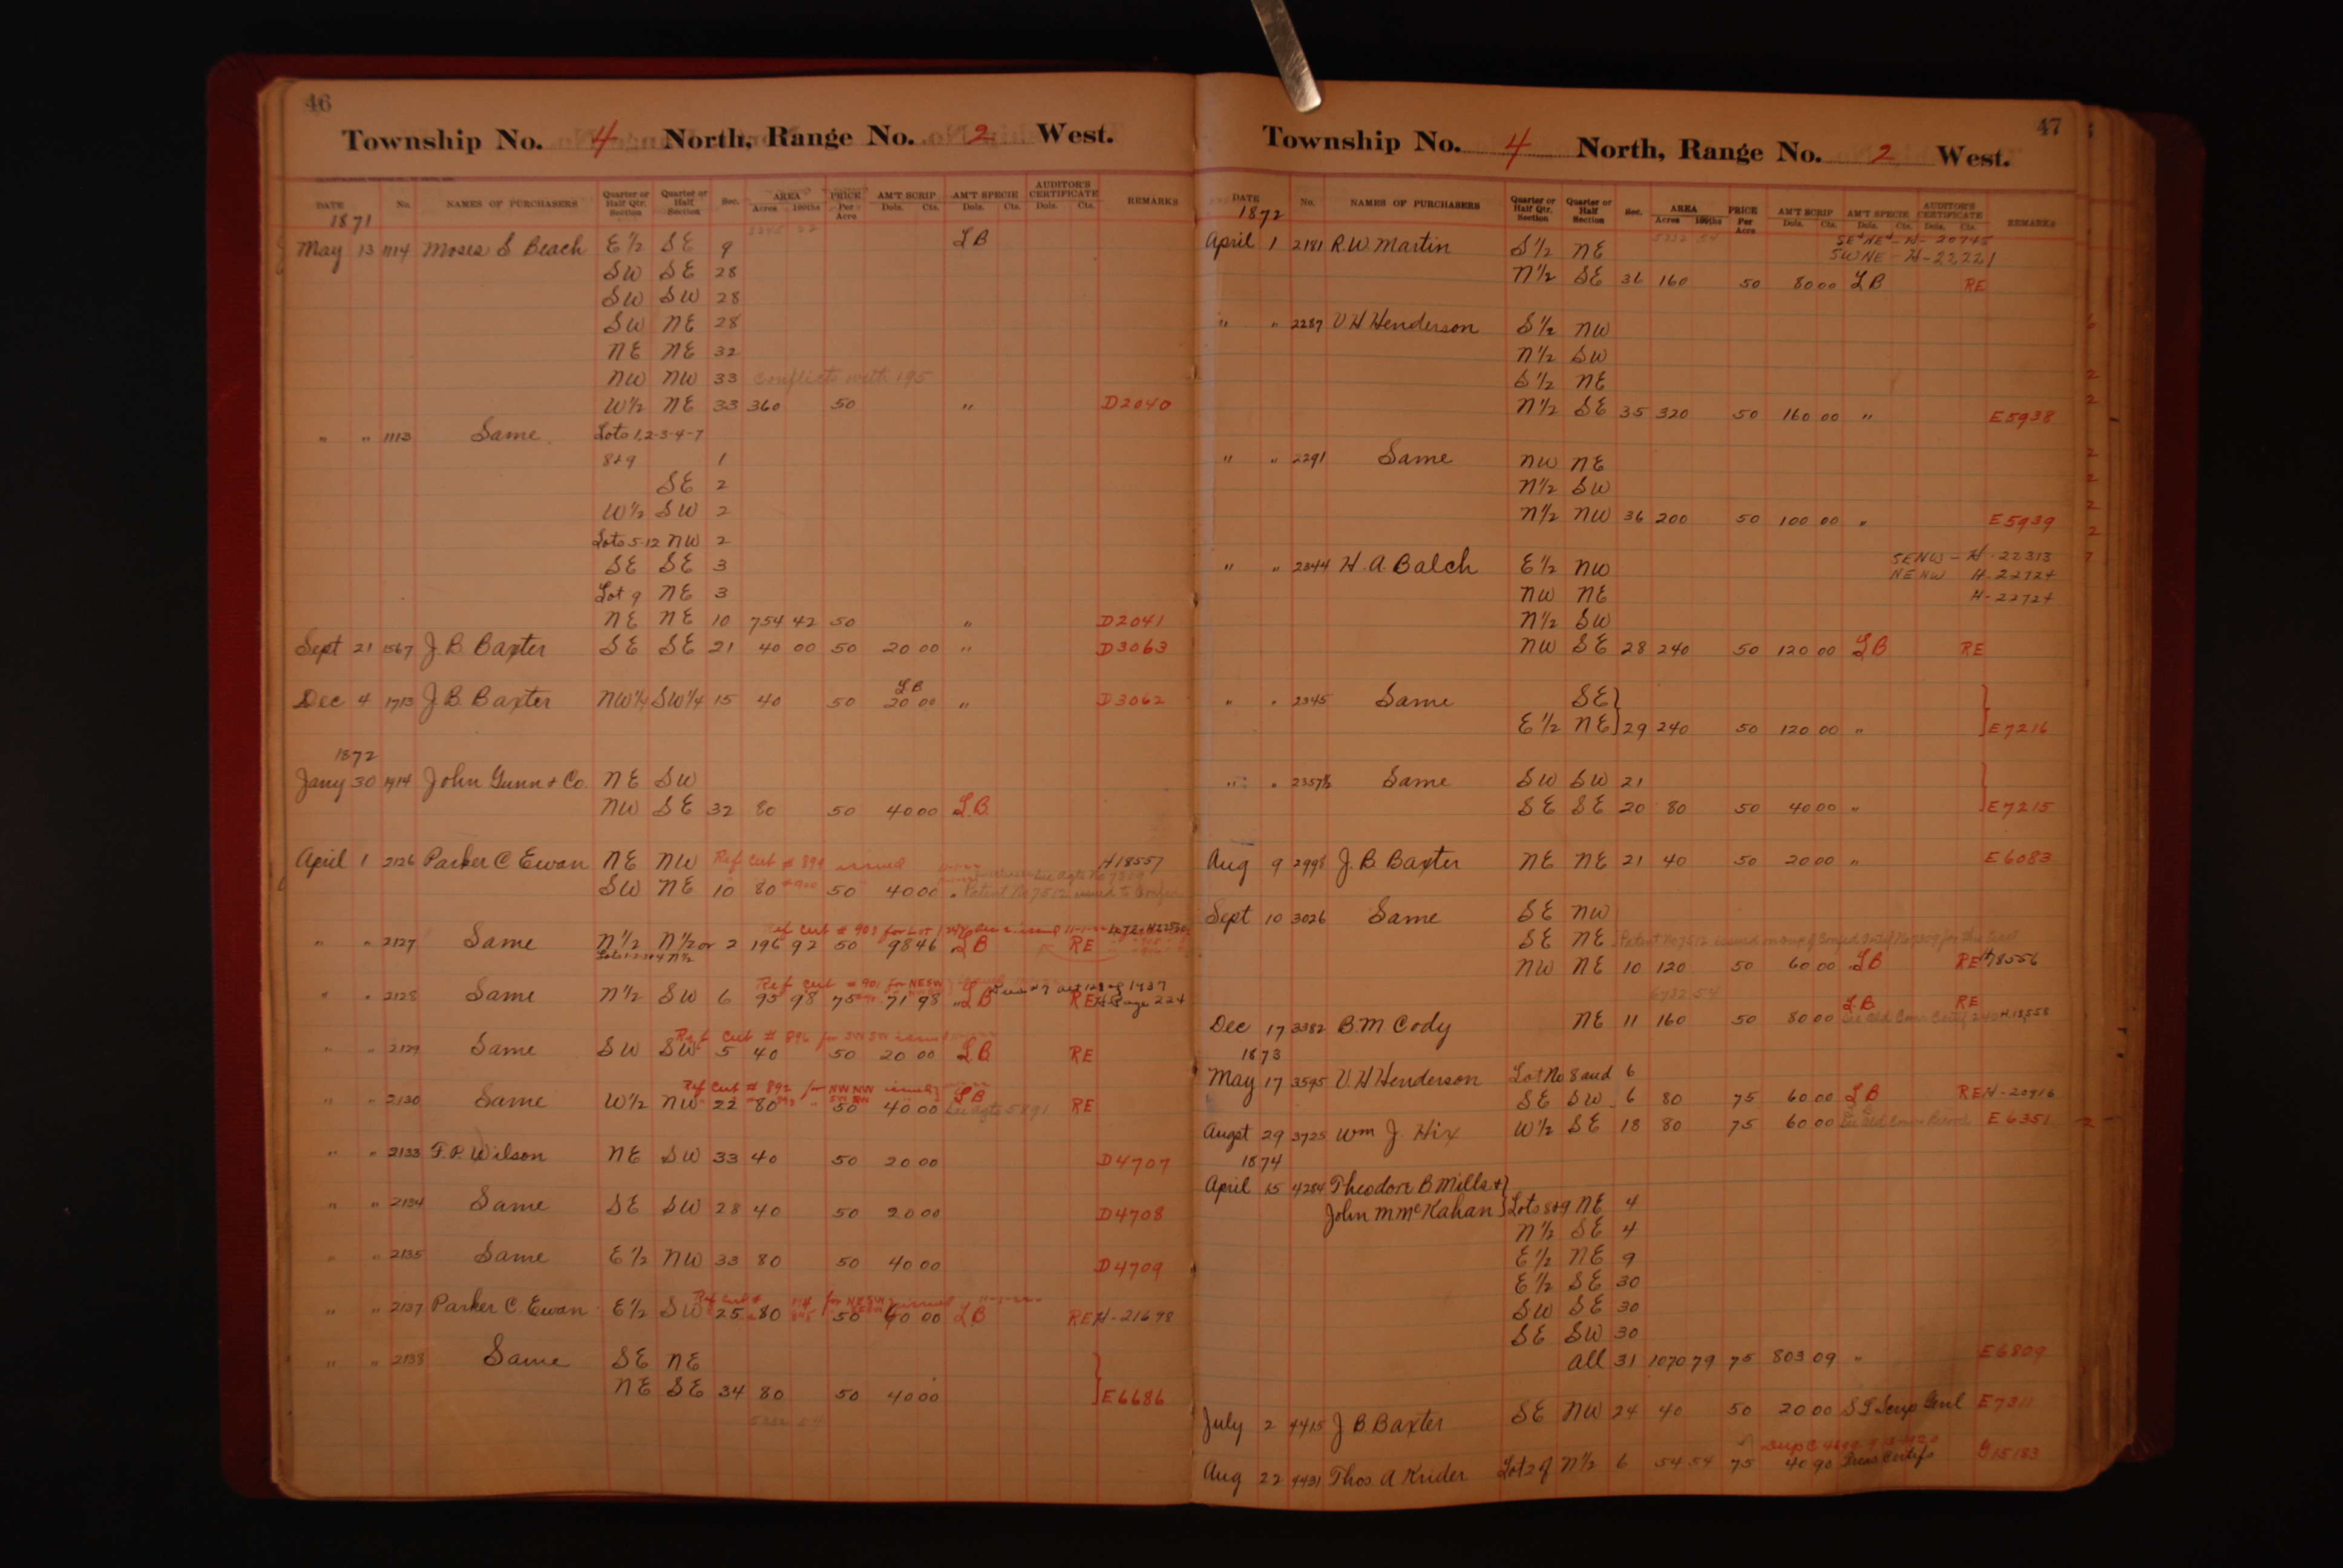 46
Township No. 4 North, Range No. 2 West.
DATE No. NAMES OF PURCHASERS Quarter or Half Qtr. Section Quarter or Half Section Sec. AREA Acres 100ths PRICE Per Acre AM'T SCRIP Dols. Cts. AM'T SPECIE Dols. Cts. AUDITOR'S CERTIFICATE Dols. Cts. REMARKS
1871
May 13 1114 Moses S Beach E½ SE 9 LB
SW SE 28
SW SW 28
SW NE 28
NE NE 32
NW NW 33 Conflicts with 195
W½ NE 33 360 50 " D2040
" " 1113 Same Lots 1,2-3-4-7
8&9 1
SE 2
W½ SW 2
Lots 5-12 NW 2
SE SE 3
Lot 9 NE 3
NE NE 10 754 42 50 " D2041
Sept 21 1567 J. B. Baxter SE SE 21 40 00 50 20 00 " D3063
LB
Dec 4 1713 J. B. Baxter NW¼ SW¼ 15 40 50 20 00 " D3062
1872
Jany 30 1914 John Gunn & Co. NE SW
NW SE 32 80 50 40 00 L.B.
April 1 2126 Parker C Ewan NE NW Ref Cert # 899 issued H18557
SW NE 10 80 #900 50 40 00 " Patent No 7512 issued to
Ref Cert # 903 for Lot 1
" " 2127 Same N½ N½ or 2 196 92 50 98 46 LB RE
Lots 1-2-3&4 N½
Ref Cert # 901 for NESW
" " 2128 Same N½ SW 6 95 98 75 71 98 " LB RE H Page 224
Ref Cert # 896 for SW SW issued
" " 2129 Same SW SW 5 40 50 20 00 L.B RE
Ref Cert # 892 for NW NW issued
" " 2130 Same W½ NW 22 80 50 40 00 LB See agts 5891 RE
" " 2133 F. P. Wilson NE SW 33 40 50 20 00 D4707
" " 2134 Same SE SW 28 40 50 20 00 D4708
" " 2135 Same E½ NW 33 80 50 40 00 D4709
Ref Cert # for NESW issued
" " 2137 Parker C. Ewan E½ SW 25 80 50 40 00 LB RE H-21698
" " 2138 Same SE NE
NE SE 34 80 50 40 00 E6686
5332 54
47
Township No. 4 North, Range No. 2 West.
DATE No. NAMES OF PURCHASERS Quarter or Half Qtr. Section Quarter or Half Section Sec. AREA Acres 100ths PRICE Per Acre AM'T SCRIP Dols. Cts. AM'T SPECIE Dols. Cts. AUDITOR'S CERTIFICATE Dols. Cts. REMARKS
1872
5332 54
April 1 2181 R. W. Martin S½ NE SE NE - H- 20745
SW NE - H-22221
N½ SE 36 160 50 80 00 LB RE
" " 2287 V. H Henderson S½ NW
N½ SW
S½ NE
N½ SE 35 320 50 160 00 " E5938
" " 2291 Same NW NE
N½ SW
N½ NW 36 200 50 100 00 " E5939
" " 2344 H. A. Balch E½ NW SENW - H-22313
NE NW H-22724
NW NE H-22724
N½ SW
NW SE 28 240 50 120 00 LB RE
" " 2345 Same SE
E½ NE 29 240 50 120 00 " E7216
" " 2357½ Same SW SW 21
SE SE 20 80 50 40 00 " E7215
Aug 9 2998 J. B Baxter NE NE 21 40 50 20 00 " E6083
Sept 10 3026 Same SE NW
SE NE Patent No 7512 issued
NW NE 10 120 50 60 00 LB RE H18556
6732 54
L.B RE
Dec 17 3382 B. M Cody NE 11 160 50 80 00 See Old Com Certif H.18,558
1873
May 17 3595 V. H Henderson Lot No 8 and 6
SE SW 6 80 75 60 00 LB RE H-20916
Augst 29 3725 Wm J. Hix W½ SE 18 80 75 60 00 See Old Com Record E6351
1874
April 15 4284 Theodore B Mills &
John M McKahan Lots 8&9 NE 4
N½ SE 4
E½ NE 9
E½ SE 30
SW SE 30
SE SW 30
all 31 1070 79 75 803 09 " E6809
July 2 4415 J B. Baxter SE NW 24 40 50 20 00 S L Scrip Genl E7311
Aug 22 4431 Thos. A Krider Lot 2 of N½ 6 54 54 75 40 90 Certifs G15183